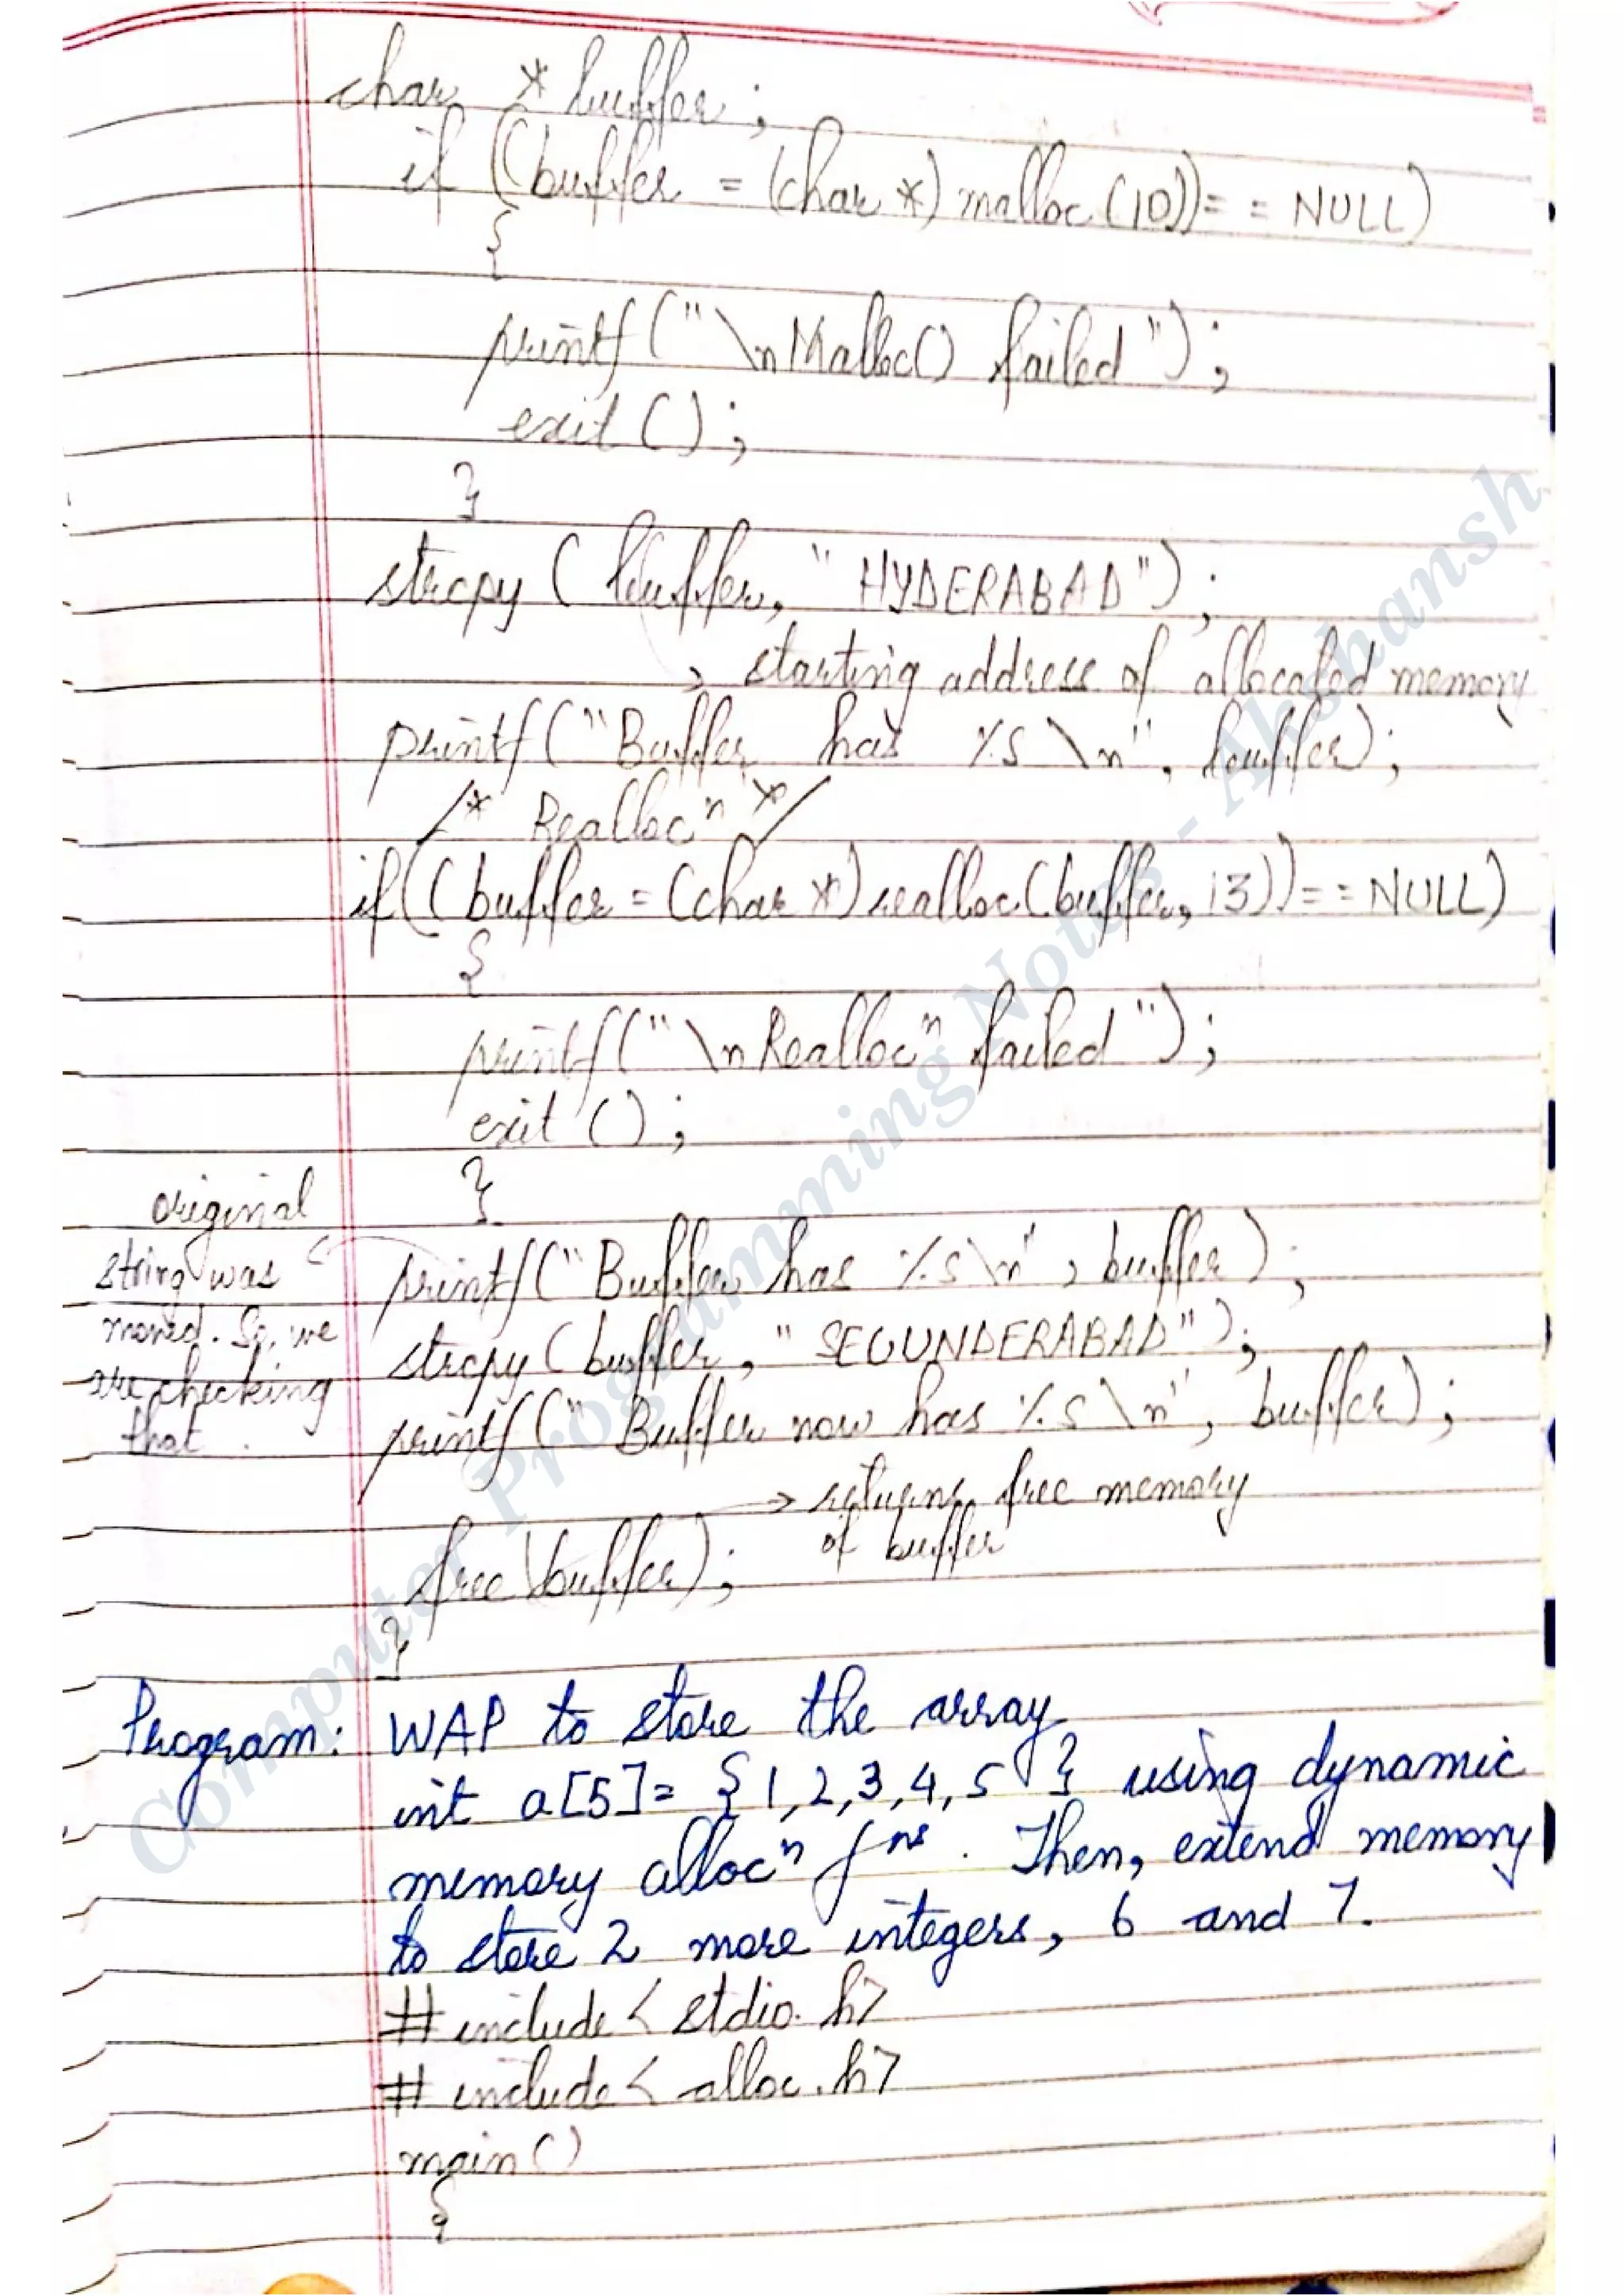 char *buffer;
if ((buffer = (char *) malloc (10)) == NULL)
{
printf ("\nMalloc() failed");
exit ();
}
strcpy (buffer, "HYDERABAD");
→ starting address of allocated memory
printf ("Buffer has %s \n", buffer);
/* Reallocⁿ */
if((buffer = (char *) realloc (buffer, 13)) == NULL)
{
printf ("\nReallocⁿ failed");
exit ();
}
original
string was
moved. So, we
are checking
that.
printf ("Buffer has %s\n", buffer);
strcpy (buffer, "SECUNDERABAD");
printf ("Buffer now has %s \n", buffer);
→ returns free memory
of buffer
free (buffer);
}
Program: WAP to store the array
int a[5] = {1,2,3,4,5} using dynamic
memory allocⁿ fⁿˢ. Then, extend memory
to store 2 more integers, 6 and 7.
# include < stdio.h>
# include < alloc.h>
main ()
{
Computer Programming Notes - Akshansh